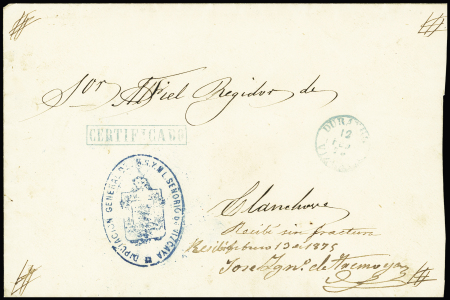 Sor Fiel Regidor de
CERTIFICADO
DURANGO
12
DIPUTACION GENERAL DEL M.N.Y M.L. SEÑORIO DE VIZCAYA
Elanchove
Recibí sin fractura
13 de 1875
José Ign.º de